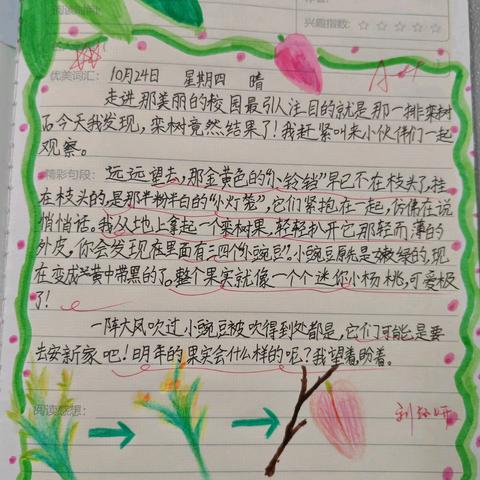 兴趣指数：☆☆☆☆☆
优美词汇：10月24日 星期四 晴
走进那美丽的校园最引人注目的就是那一排栾树
了。今天我发现，栾树竟然结果了！我赶紧叫来小伙伴们一起
观察。
精彩句段：远远望去，那金黄色的“小铃铛”早已不在枝头了，挂
在枝头的，是那半粉半白的“小灯笼”，它们紧抱在一起，仿佛在说
悄悄话。我从地上拿起一个栾树果，轻轻扒开它那轻而薄的
外皮，你会发现在里面有三四个“小豌豆”。小豌豆原先是嫩绿的，现
在变成黄中带黑的了。整个果实就像一个个迷你小杨桃，可爱极
了！
一阵大风吹过，小豌豆被吹得到处都是，它们可能是要
去安新家吧！明年的果实会什么样的呢？我望着，盼着。
阅读感想：